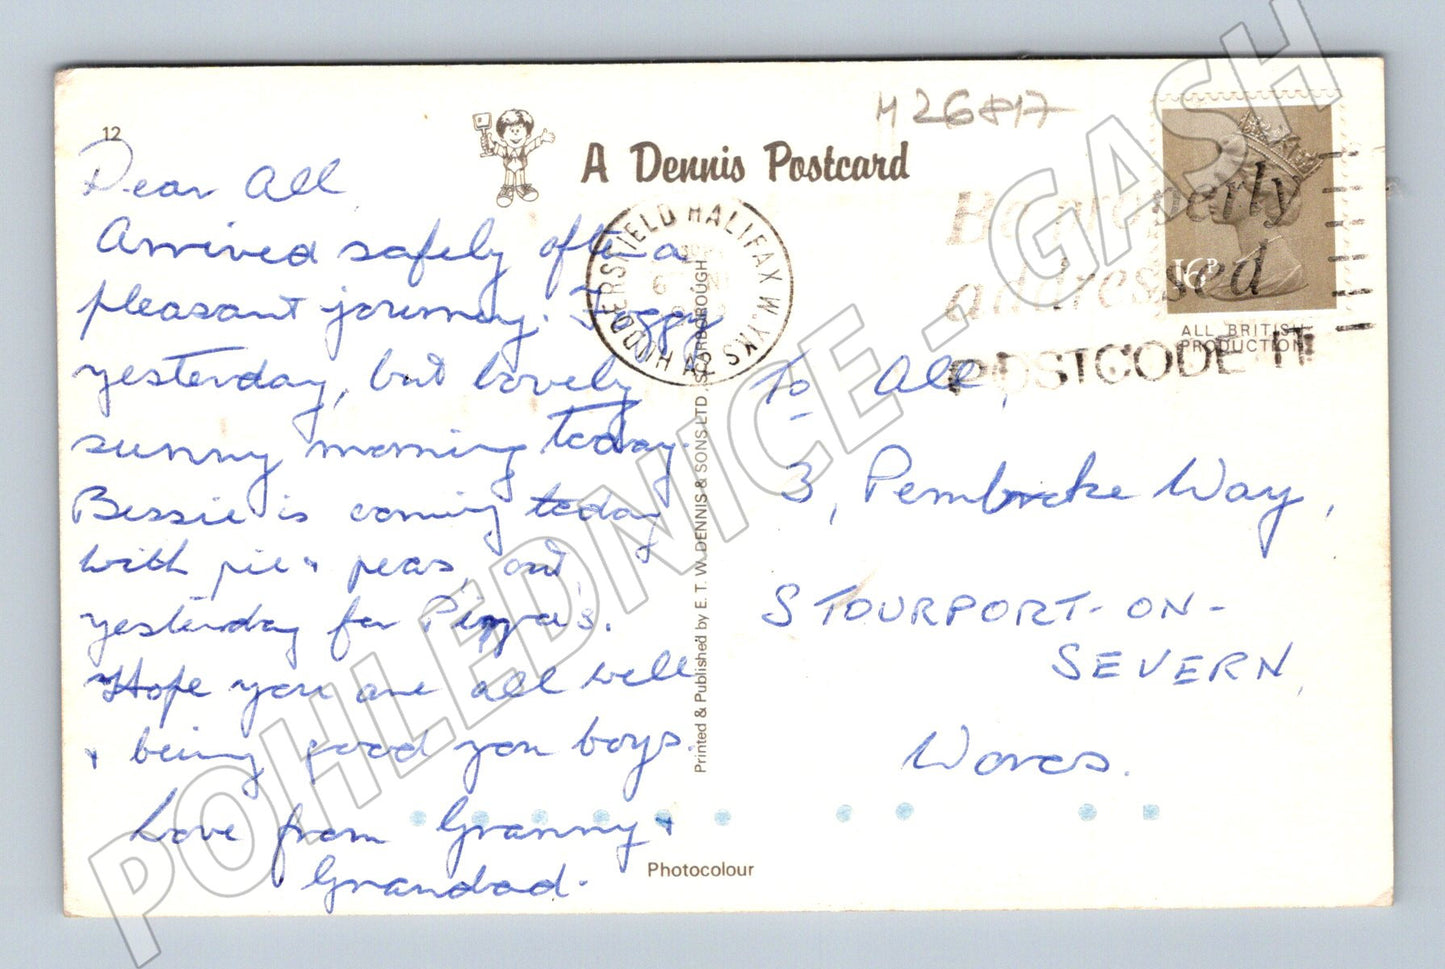 12
A Dennis Postcard
M 26817
Dear All,
Arrived safely after a
pleasant journey. Foggy
yesterday, but lovely
sunny morning today.
Bessie is coming today
with pie & peas, and,
yesterday for
Hope you are all well
& being good you boys.
Love from Granny &
Grandad.
HUDDERSFIELD HALIFAX W. YKS
Be properly
addressed
POSTCODE IT
16P
ALL BRITISH
PRODUCTION
To All,
3, Pembroke Way,
STOURPORT-ON-
SEVERN,
Worcs.
Printed & Published by E. T. W. DENNIS & SONS LTD., SCARBOROUGH
Photocolour
POHLEDNICE - GASH